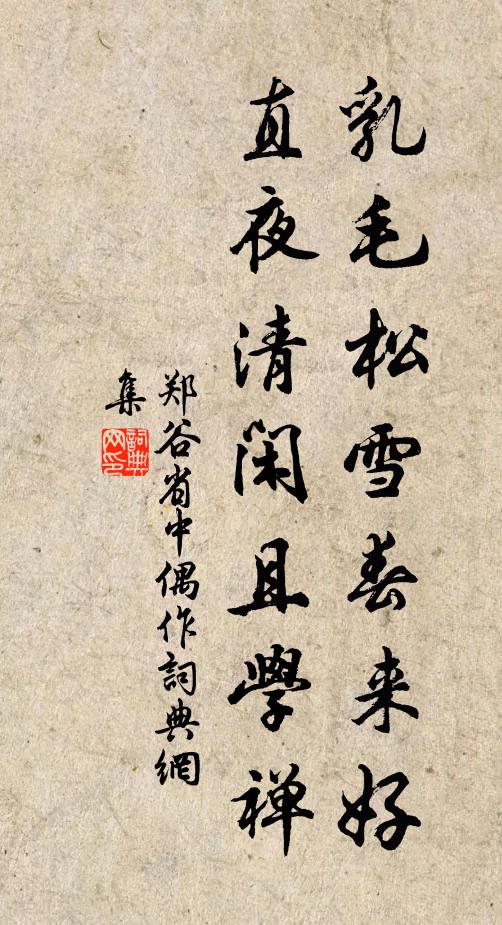 乳毛松雪春来好
直夜清闲且學禅
郑谷省中偶作詞典網
集
詞典網印